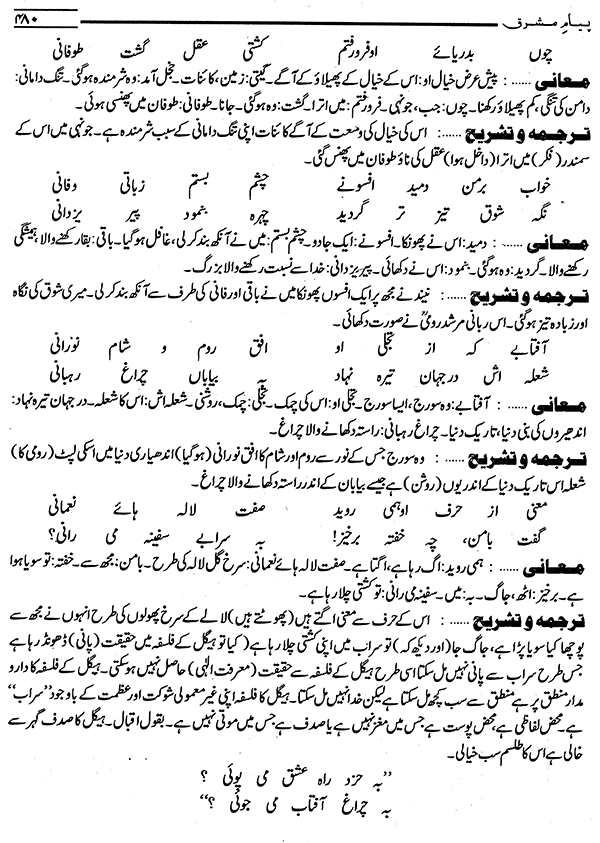 پیامِ مشرق ۴۸۰
چوں بدریائے اوفرورفتم کشتی عقل گشت طوفانی
معانی ...... : پیش عرض خیال او: اس کے خیال کے پھیلاؤ کے آگے۔ گیتی: زمین، کائنات۔ خجل آمد: وہ شرمندہ ہوگئی۔ تنگ دامانی:
دامن کی تنگی، کم پھیلاؤ رکھنا۔ چوں: جب، جونہی۔ فرورفتم: میں اترا۔ گشت: وہ ہوگئی۔ جانا۔ طوفانی: طوفان میں پھنسی ہوئی۔
ترجمہ و تشریح ...... : اس کی خیال کی وسعت کے آگے کائنات اپنی تنگ دامانی کے سبب شرمندہ ہے۔ جونہی میں اس کے
سمندر (فکر) میں اترا (داخل ہوا) عقل کی ناؤ طوفان میں پھنس گئی۔
خواب برمن دمید افسونے چشم بستم زباقی وفانی
نگہ شوق تیز تر گردید چہرہ بنمود پیر یزدانی
معانی ...... : دمید: اس نے پھونکا۔ افسونے: ایک جادو۔ چشم بستم: میں نے آنکھ بند کرلی، غافل ہوگیا۔ باقی: بقا رکھنے والا، ہمیشگی
رکھنے والا۔ گردید: وہ ہوگئی۔ بنمود: اس نے دکھائی۔ پیر یزدانی: خدا سے نسبت رکھنے والا بزرگ۔
ترجمہ و تشریح ...... : نیند نے مجھ پر ایک افسوں پھونکا میں نے باقی اور فانی کی طرف سے آنکھ بند کرلی۔ میری شوق کی نگاہ
اور زیادہ تیز ہوگئی۔ اس ربانی مرشد رومیؒ نے صورت دکھائی۔
آفتابے کہ از تجلی او افق روم و شام نورانی
شعلہ اش درجہان تیرہ نہاد بہ بیاباں چراغ رہبانی
معانی ...... : آفتابے: وہ سورج، ایسا سورج۔ تجلی او: اس کی چمک۔ تجلی: چمک، روشنی۔ شعلہ اش: اس کا شعلہ۔ درجہان تیرہ نہاد:
اندھیروں کی بنی دنیا، تاریک دنیا۔ چراغ رہبانی: راستہ دکھانے والا چراغ۔
ترجمہ و تشریح ...... : وہ سورج جس کے نور سے روم اور شام کا افق نورانی (ہوگیا) اندھیاری دنیا میں اسکی لپٹ (رومی کا)
شعلہ اس تاریک دنیا کے اندر یوں (روشن) ہے جیسے بیابان کے اندر راستہ دکھانے والا چراغ۔
معنی از حرف اوہمی روید صفت لالہ ہائے نعمانی
گفت بامن، چہ خفتہ برخیز! بہ سرابے سفینہ می رانی؟
معانی ...... : ہمی روید: اگ رہا ہے، اگتا ہے۔ صفت لالہ ہائے نعمانی: سرخ گل لالہ کی طرح۔ بامن: مجھ سے۔ خفتہ: تو سویا ہوا
ہے۔ برخیز: اٹھ، جاگ۔ بہ: میں۔ سفینہ می رانی: تو کشتی چلا رہا ہے۔
ترجمہ و تشریح ...... : اس کے حرف سے معنی اگتے ہیں (پھوٹتے ہیں) لالے کے سرخ پھولوں کی طرح انہوں نے مجھ سے
پوچھا کیا سویا پڑا ہے، جاگ جا (اور دیکھ کہ) تو سراب میں اپنی کشتی چلا رہا ہے (کیا تو ہیگل کے فلسفہ میں حقیقت (پانی) ڈھونڈ رہا ہے
جس طرح سراب سے پانی نہیں مل سکتا اسی طرح ہیگل کے فلسفہ سے حقیقت (معرفت الٰہی) حاصل نہیں ہوسکتی۔ ہیگل کے فلسفہ کا دارو
مدار منطق پر ہے منطق سے سب کچھ مل سکتا ہے لیکن خدا نہیں مل سکتا۔ ہیگل کا فلسفہ اپنی غیر معمولی شوکت اور عظمت کے باوجود ”سراب“
ہے۔ محض لفاظی ہے، محض پوست ہے جس میں مغز نہیں ہے یا صدف ہے جس میں موتی نہیں ہے۔ بقول اقبال۔ ہیگل کا صدف گہر سے
خالی ہے اس کا طلسم سب خیالی۔
”بہ خرد راہ عشق می پوئی ؟
بہ چراغ آفتاب می جوئی ؟“